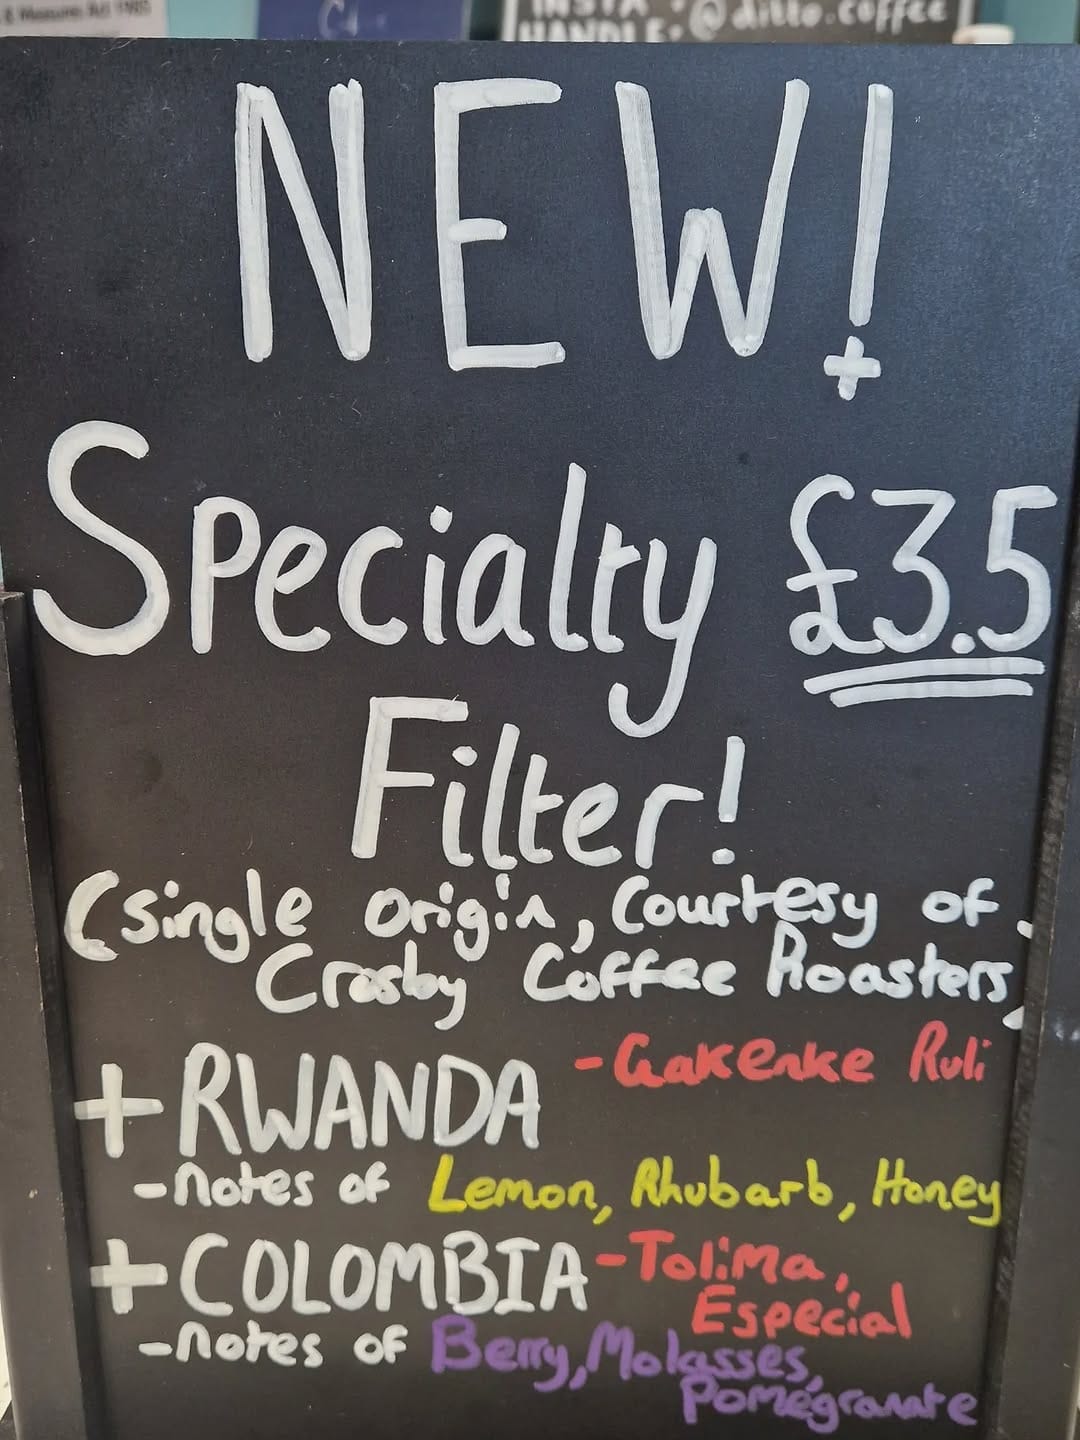 & Measures Act 1985
INSTA : @ditto.coffee
HANDLE:
NEW!
Specialty £3.5
Filter!
(single origin, Courtesy of
Crosby Coffee Roasters)
+ RWANDA - Gakenke Ruli
- notes of Lemon, Rhubarb, Honey
+ COLOMBIA - Tolima,
Especial
- notes of Berry, Molasses,
Pomegranate